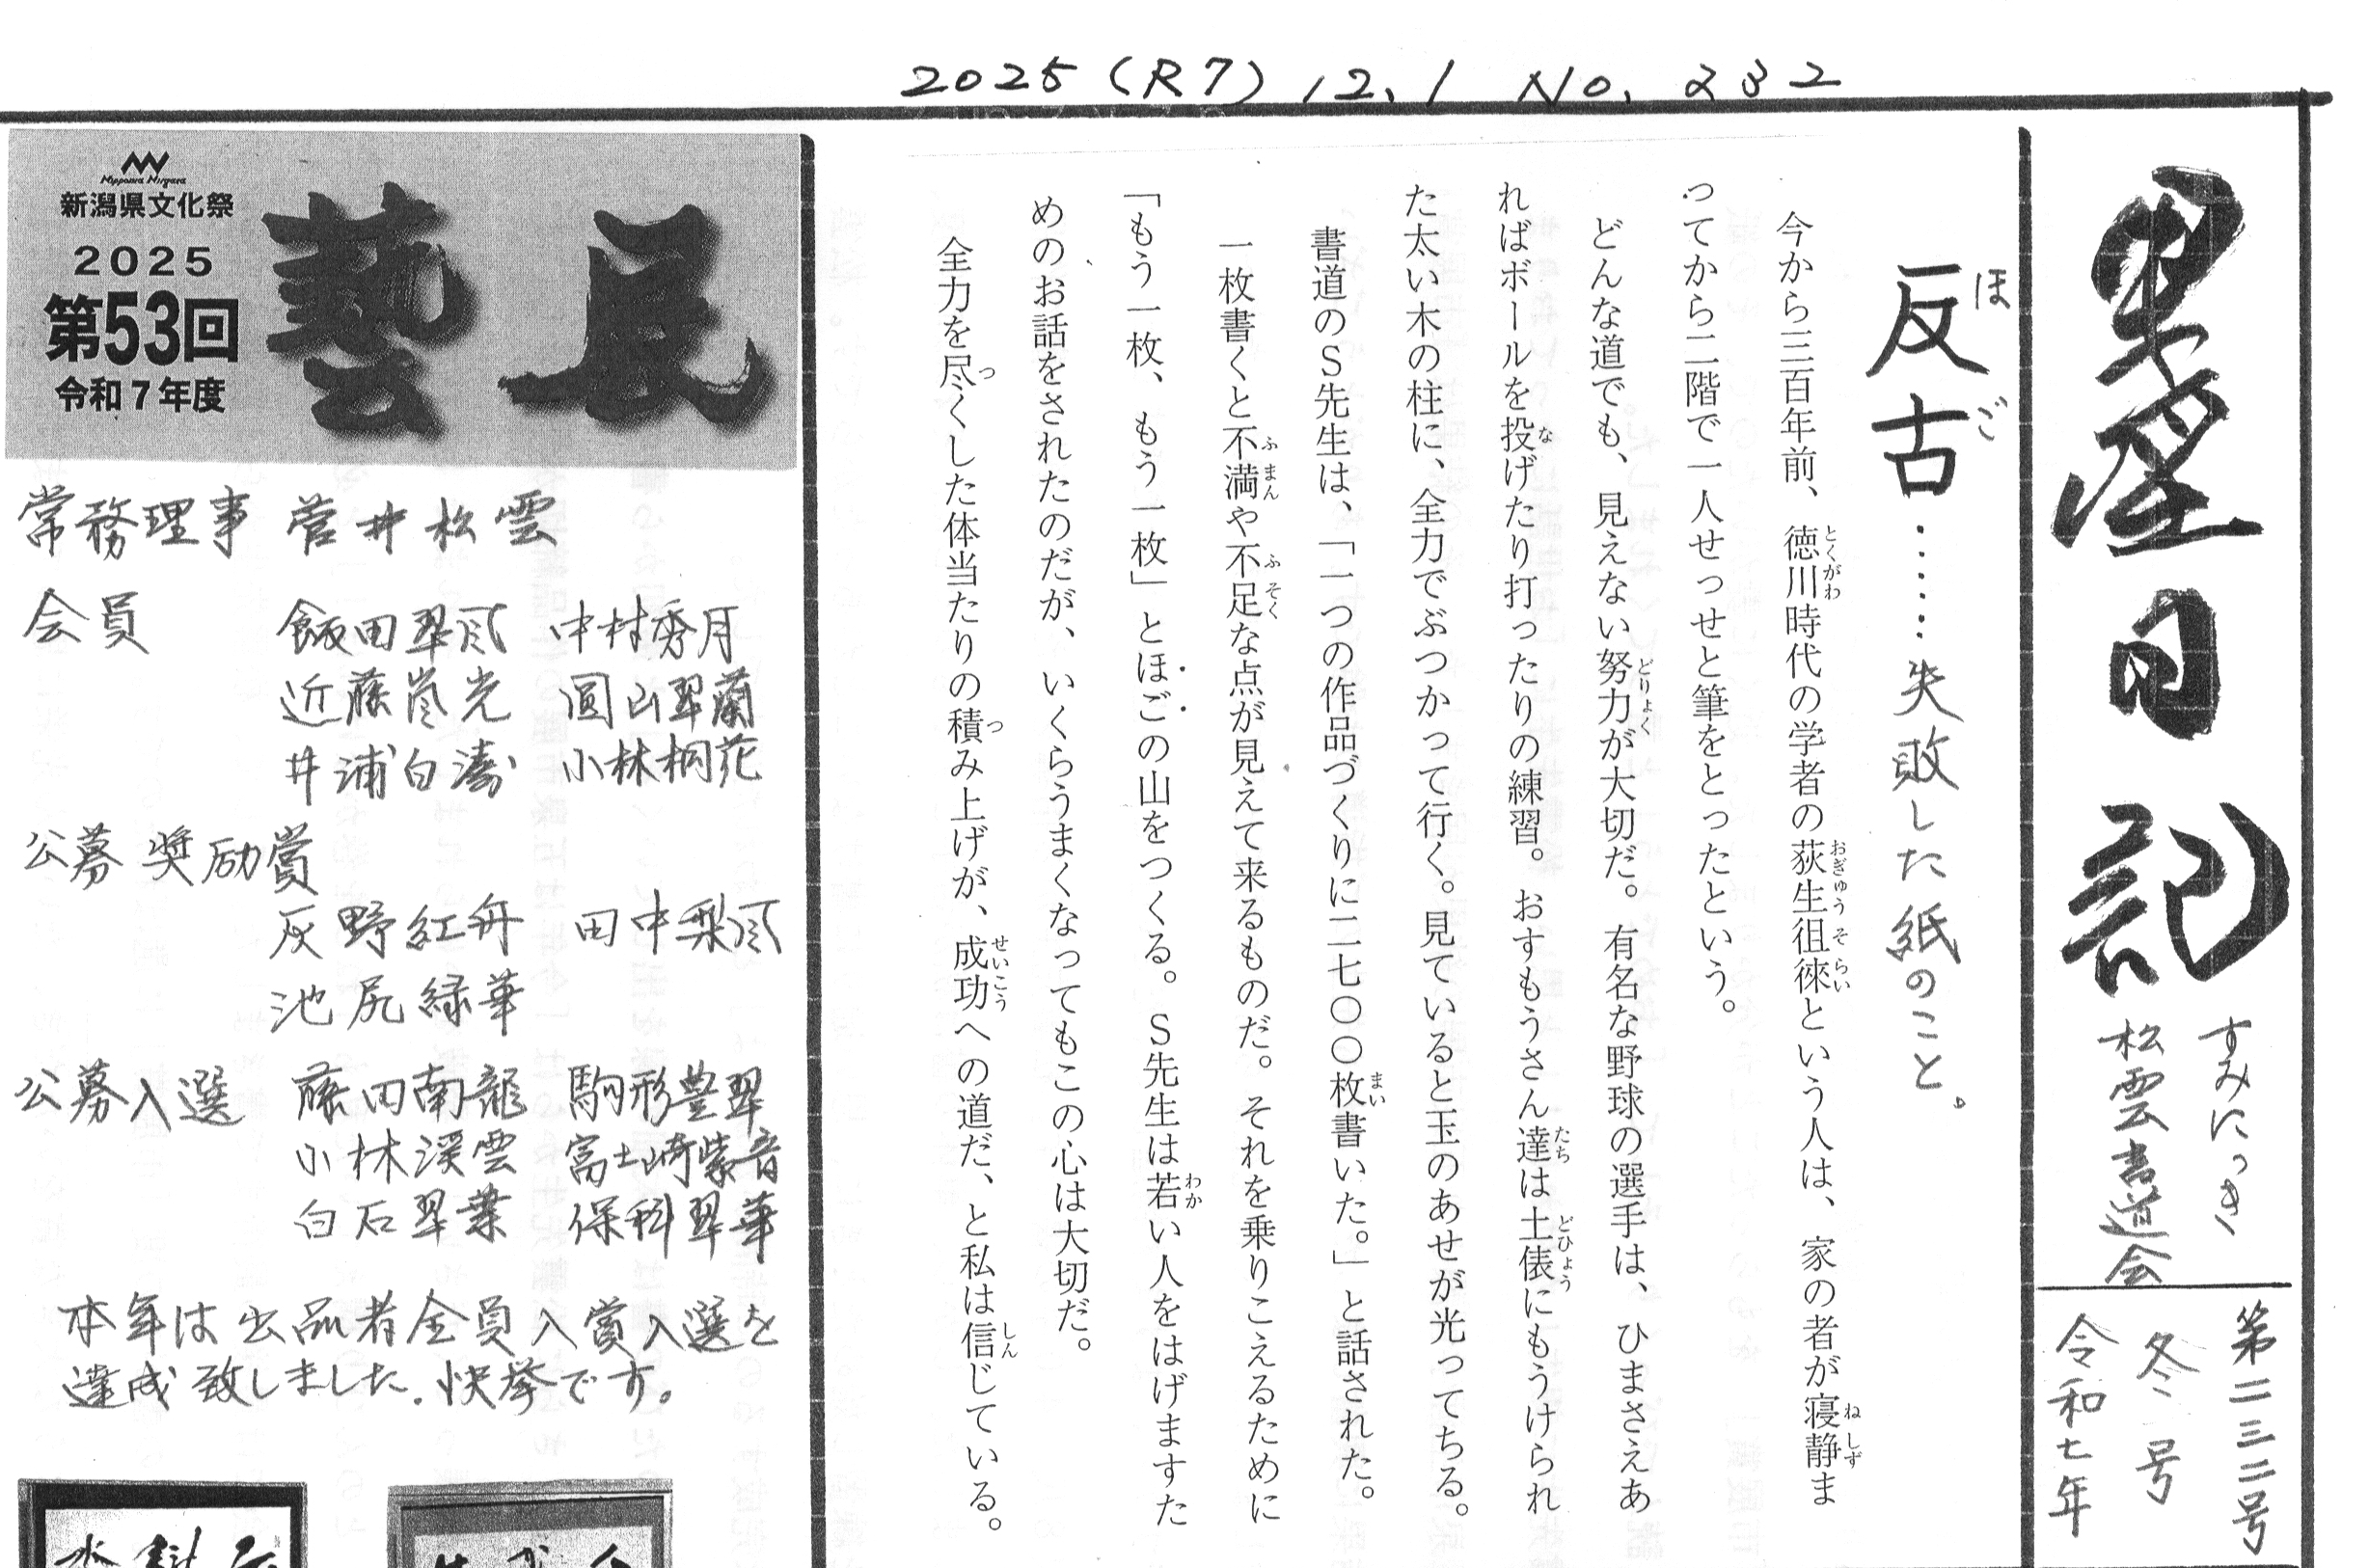 2025（R7）12.1 No.232
墨日記
すみにっき
松雲書道会
第二三二号
冬号
令和七年
反古……失敗した紙のこと。
ほご
今から三百年前、徳川時代の学者の荻生徂徠という人は、家の者が寝静ま
ってから二階で一人せっせと筆をとったという。
どんな道でも、見えない努力が大切だ。有名な野球の選手は、ひまさえあ
ればボールを投げたり打ったりの練習。おすもうさん達は土俵にもうけられ
た太い木の柱に、全力でぶつかって行く。見ていると玉のあせが光ってちる。
書道のS先生は、「一つの作品づくりに二七〇〇枚書いた。」と話された。
一枚書くと不満や不足な点が見えて来るものだ。それを乗りこえるために
「もう一枚、もう一枚」とほごの山をつくる。S先生は若い人をはげますた
めのお話をされたのだが、いくらうまくなってもこの心は大切だ。
全力を尽くした体当たりの積み上げが、成功への道だ、と私は信じている。
Nippona Niigata
新潟県文化祭
2025
第53回
令和7年度
藝展
常務理事 菅井松雲
会員 飯田翠風 中村秀月
近藤嵐光 圓山翠蘭
井浦白濤 小林桐花
公募 奨励賞
灰野紅舟 田中梨風
池尻緑華
公募入選 藤田南龍 駒形豊翠
小林渓雲 富士崎紫音
白石翠葉 保科翠華
本年は出品者全員入賞入選を
達成致しました。快挙です。